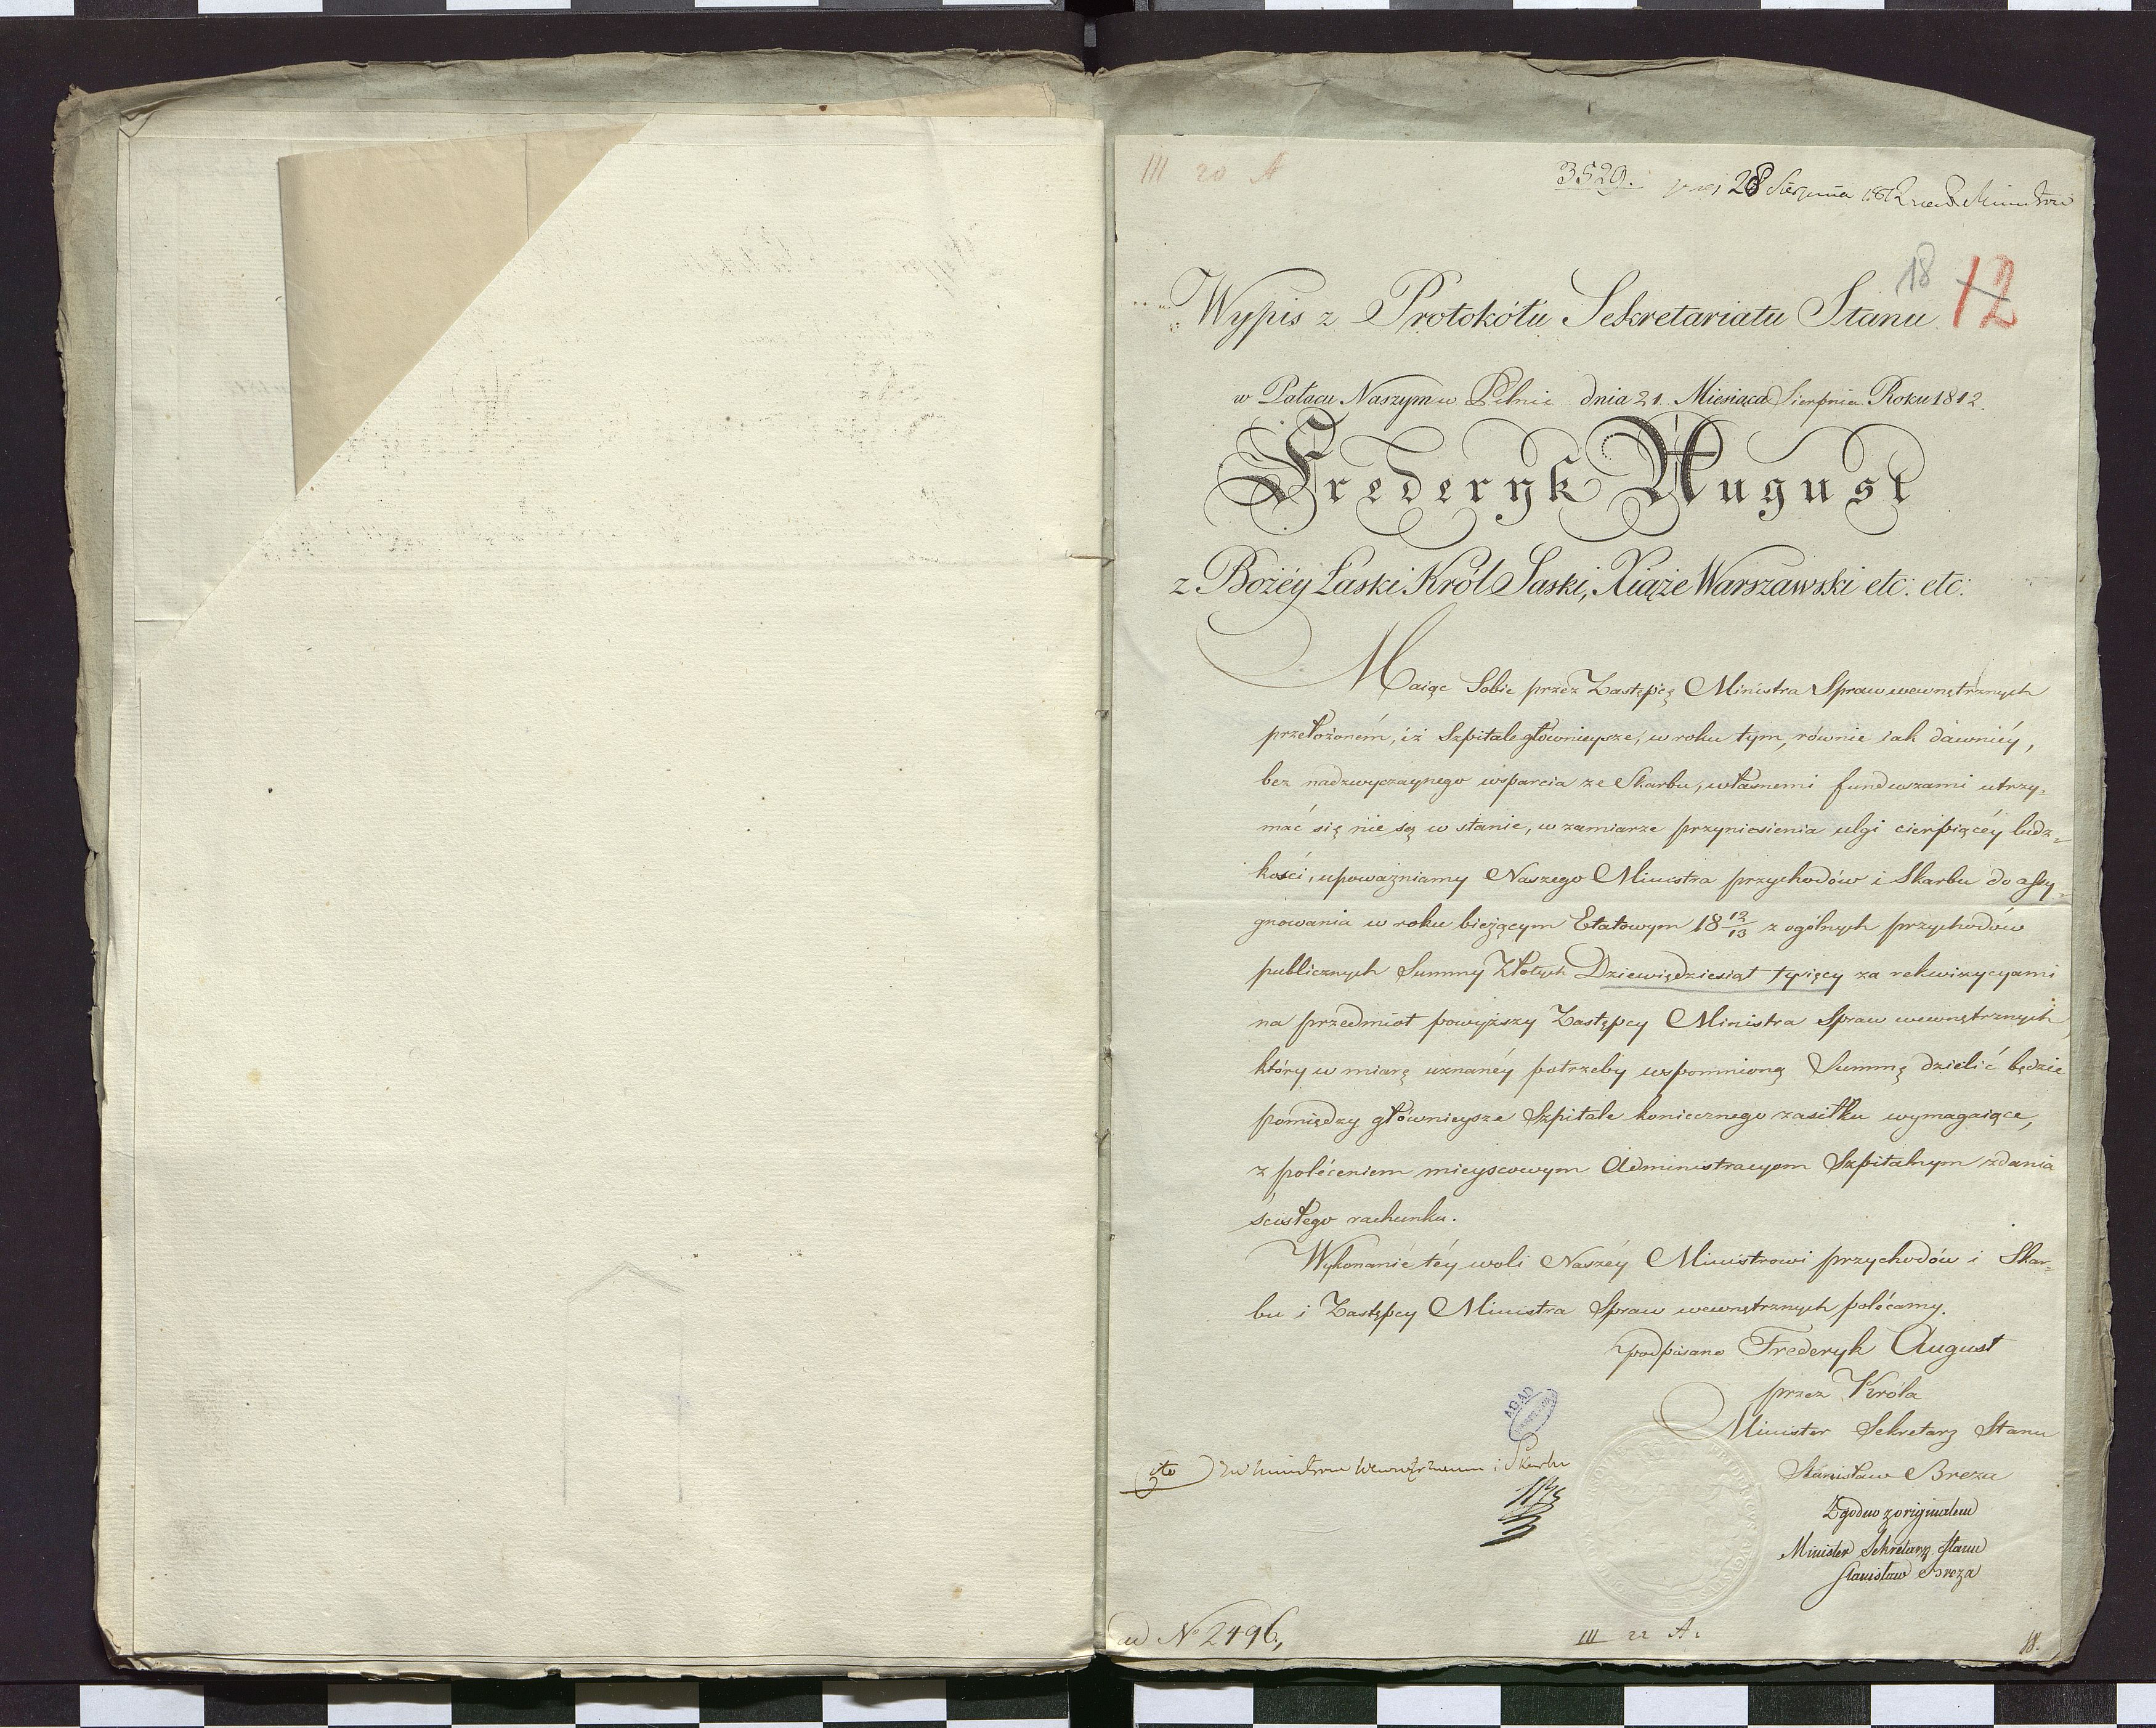 III 20 A
3529. 28 Sierpnia 1812
18 12
Wypis z Protokółu Sekretariatu Stanu
w Pałacu Naszym w Pilnic dnia 21. Miesiąca Sierpnia Roku 1812.
Fryderyk August
z Bożéy Łaski Król Saski, Xiąże Warszawski etc: etc:
Maiąc Sobie przez Zastępcę Ministra Spraw wewnętrznych
przełożoném, iż Szpitale głównieysze, w roku tym, równie iak dawniéy,
bez nadzwyczaynego wsparcia ze Skarbu, własnemi funduszami utrzy-
mać się nie są w stanie, w zamiarze przyniesienia ulgi cierpiącéy ludz-
kości, upoważniamy Naszego Ministra przychodów i Skarbu do assy-
gnowania w roku bieżącym Etatowym 18 12/13 z ogólnych przychodów
publicznych Summy Złotych Dziewięćdziesiąt tysięcy za rekwizycyami
na przedmiot powyższy Zastępcy Ministra Spraw wewnętrznych
który w miarę uznanéy potrzeby wspomnioną Summę dzielić będzie
pomiędzy głównieysze Szpitale koniecznego zasiłku wymagaiące,
z poléceniem mieyscowym Administracyom Szpitalnym zdania
ścisłego rachunku.
Wykonanie téy woli Naszéy Ministrowi przychodów i Skar-
bu i Zastępcy Ministra Spraw wewnętrznych polécamy.
podpisano Fryderyk August
przez Króla
Minister Sekretarz Stanu
Stanisław Breza
Zgodno z originałem
Minister Sekretarz Stanu
Stanisław Breza
AGAD
i Skarbu
ad No 2496,
III 22 A.
18.